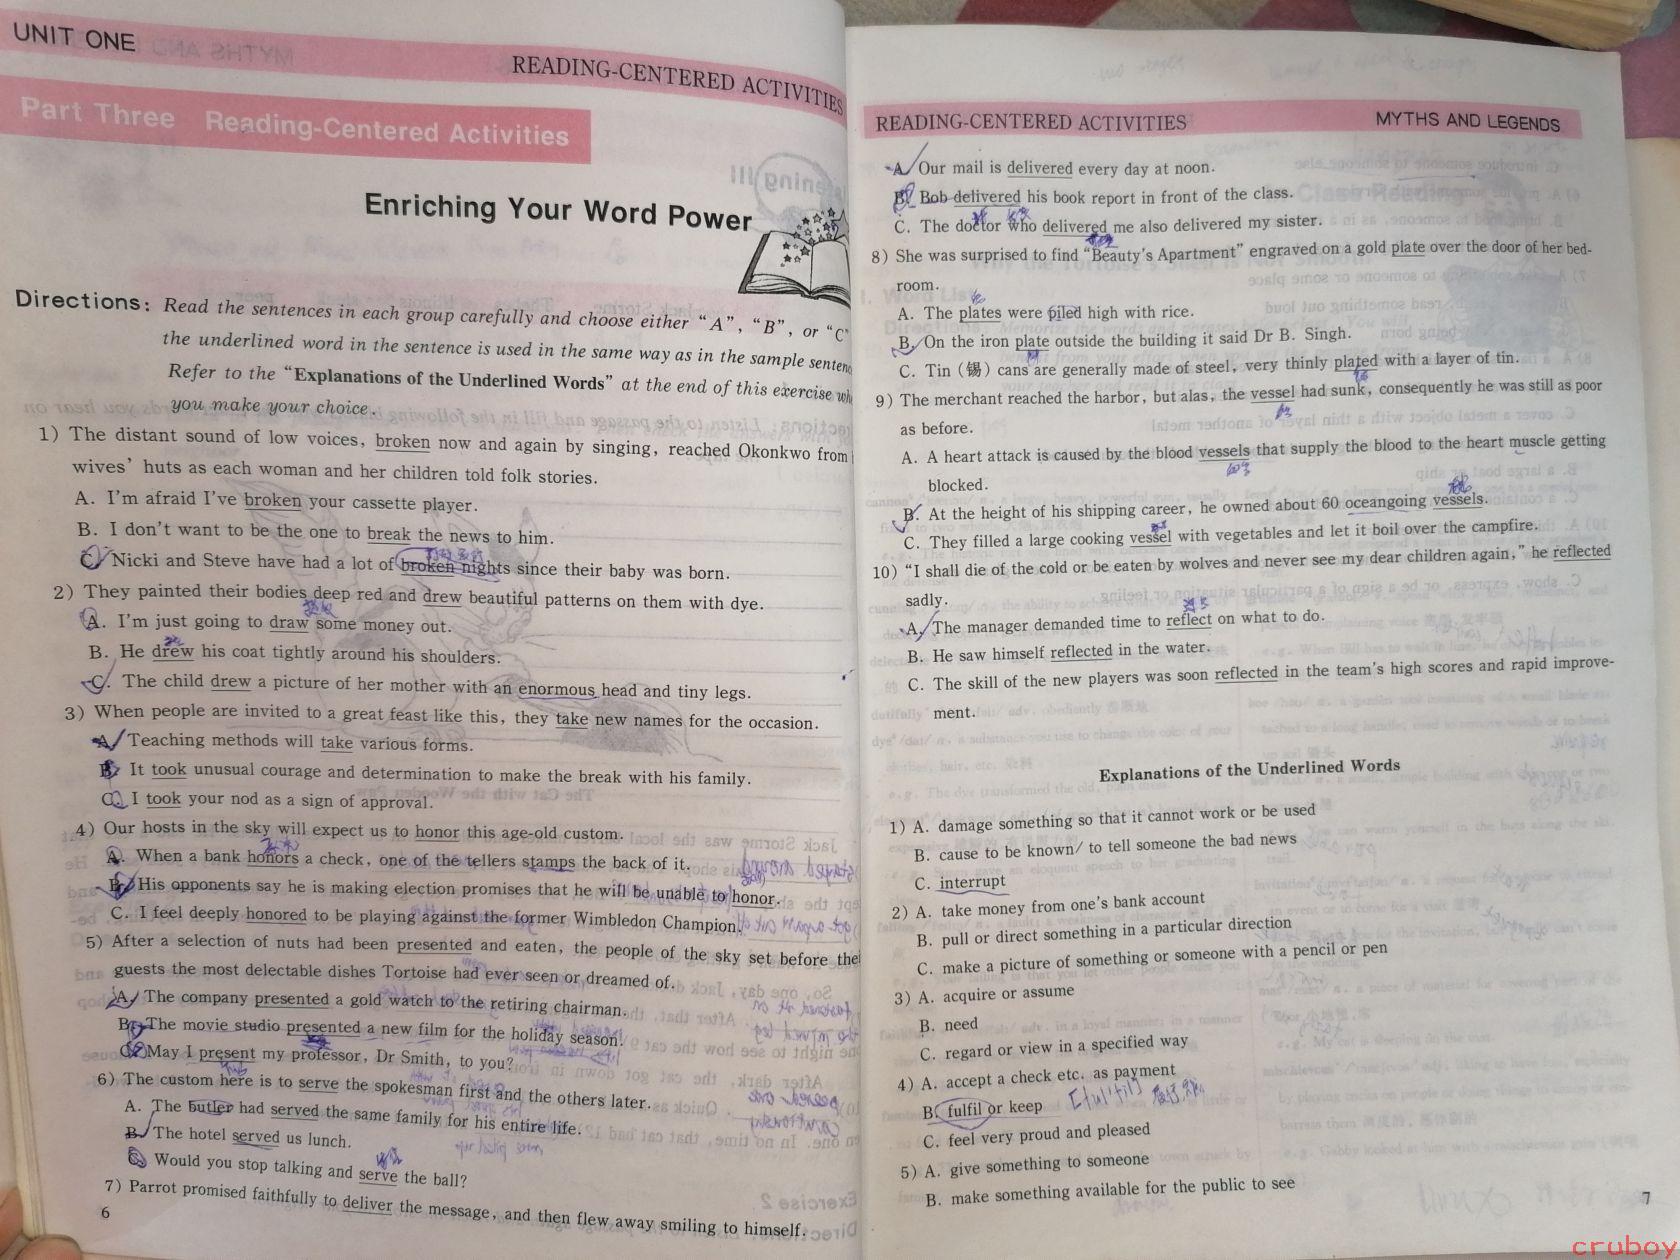 UNIT ONE
READING-CENTERED ACTIVITIES
Part Three Reading-Centered Activities
Enriching Your Word Power
Directions: Read the sentences in each group carefully and choose either "A", "B", or "C"
the underlined word in the sentence is used in the same way as in the sample
Refer to the "Explanations of the Underlined Words" at the end of this exercise
you make your choice.
1) The distant sound of low voices, broken now and again by singing, reached Okonkwo from
wives' huts as each woman and her children told folk stories.
A. I'm afraid I've broken your cassette player.
B. I don't want to be the one to break the news to him.
C. Nicki and Steve have had a lot of broken nights since their baby was born.
2) They painted their bodies deep red and drew beautiful patterns on them with dye.
A. I'm just going to draw some money out.
B. He drew his coat tightly around his shoulders.
C. The child drew a picture of her mother with an enormous head and tiny legs.
3) When people are invited to a great feast like this, they take new names for the occasion.
A. Teaching methods will take various forms.
B. It took unusual courage and determination to make the break with his family.
C. I took your nod as a sign of approval.
4) Our hosts in the sky will expect us to honor this age-old custom.
A. When a bank honors a check, one of the tellers stamps the back of it.
B. His opponents say he is making election promises that he will be unable to honor.
C. I feel deeply honored to be playing against the former Wimbledon Champion.
5) After a selection of nuts had been presented and eaten, the people of the sky set before the
guests the most delectable dishes Tortoise had ever seen or dreamed of.
A. The company presented a gold watch to the retiring chairman.
B. The movie studio presented a new film for the holiday season.
C. May I present my professor, Dr Smith, to you?
6) The custom here is to serve the spokesman first and the others later.
A. The butler had served the same family for his entire life.
B. The hotel served us lunch.
C. Would you stop talking and serve the ball?
7) Parrot promised faithfully to deliver the message, and then flew away smiling to himself.
6
READING-CENTERED ACTIVITIES MYTHS AND LEGENDS
A. Our mail is delivered every day at noon.
B. Bob delivered his book report in front of the class.
C. The doctor who delivered me also delivered my sister.
8) She was surprised to find "Beauty's Apartment" engraved on a gold plate over the door of her bed-
room.
A. The plates were piled high with rice.
B. On the iron plate outside the building it said Dr B. Singh.
C. Tin (锡) cans are generally made of steel, very thinly plated with a layer of tin.
9) The merchant reached the harbor, but alas, the vessel had sunk, consequently he was still as poor
as before.
A. A heart attack is caused by the blood vessels that supply the blood to the heart muscle getting
blocked.
B. At the height of his shipping career, he owned about 60 oceangoing vessels.
C. They filled a large cooking vessel with vegetables and let it boil over the campfire.
10) "I shall die of the cold or be eaten by wolves and never see my dear children again," he reflected
sadly.
A. The manager demanded time to reflect on what to do.
B. He saw himself reflected in the water.
C. The skill of the new players was soon reflected in the team's high scores and rapid improve-
ment.
Explanations of the Underlined Words
1) A. damage something so that it cannot work or be used
B. cause to be known/ to tell someone the bad news
C. interrupt
2) A. take money from one's bank account
B. pull or direct something in a particular direction
C. make a picture of something or someone with a pencil or pen
3) A. acquire or assume
B. need
C. regard or view in a specified way
4) A. accept a check etc. as payment
B. fulfil or keep
C. feel very proud and pleased
5) A. give something to someone
B. make something available for the public to see
7
cruboy